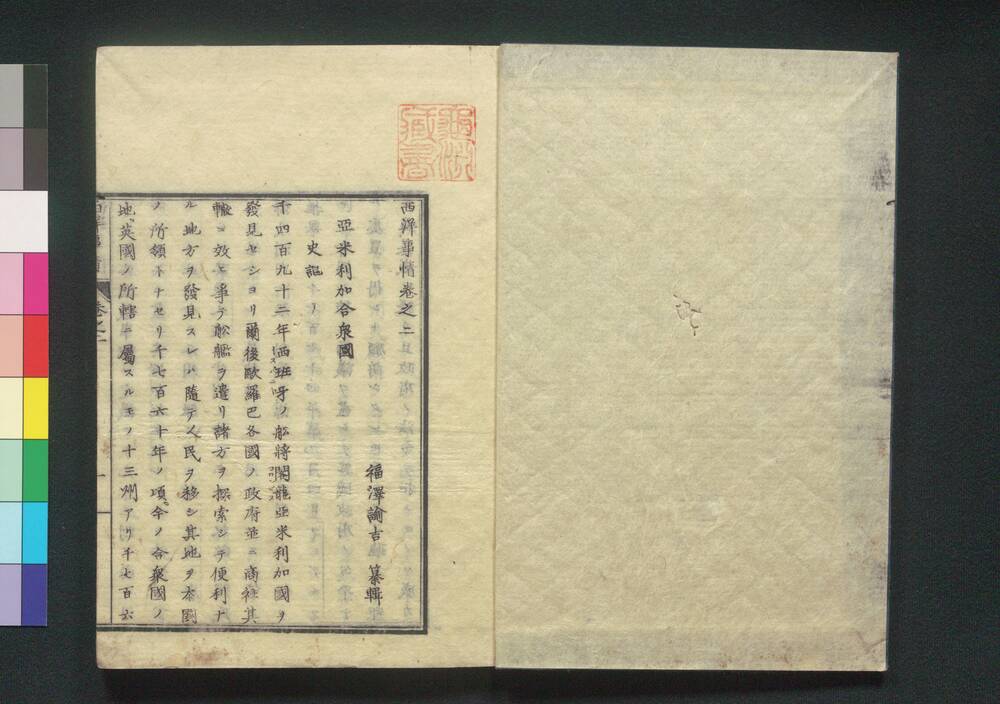 西洋事情卷之二
福澤諭吉纂輯
亞米利加合衆國
史記
千四百九十二年西班牙ノ舩將閣龍亞米利加國ヲ
發見セシヨリ爾後歐羅巴各國ノ政府並ニ商社其
轍ニ效ヒ爭テ舩艦ヲ遣リ諸方ヲ探索シテ便利ナ
ル地方ヲ發見スレハ隨テ人民ヲ移シ其地ヲ本國
ノ所領トナセリ千七百六十年ノ頃今ノ合衆國ノ
地英國ノ所轄ニ屬スルモノ十三州アリ千七百六
卷之二
一
藏書